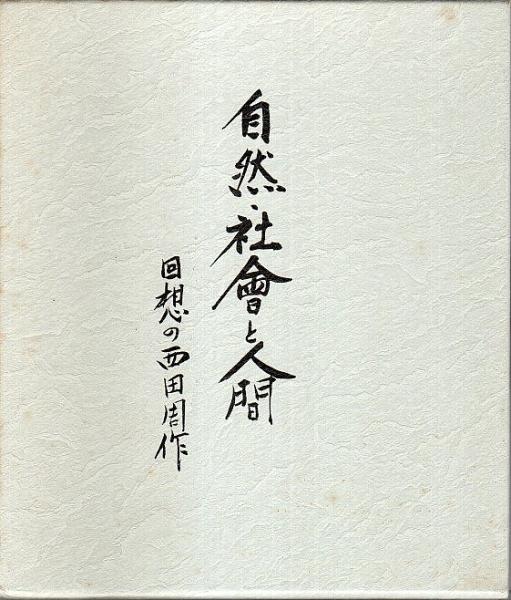 自然・社會と人間
回想の西田周作